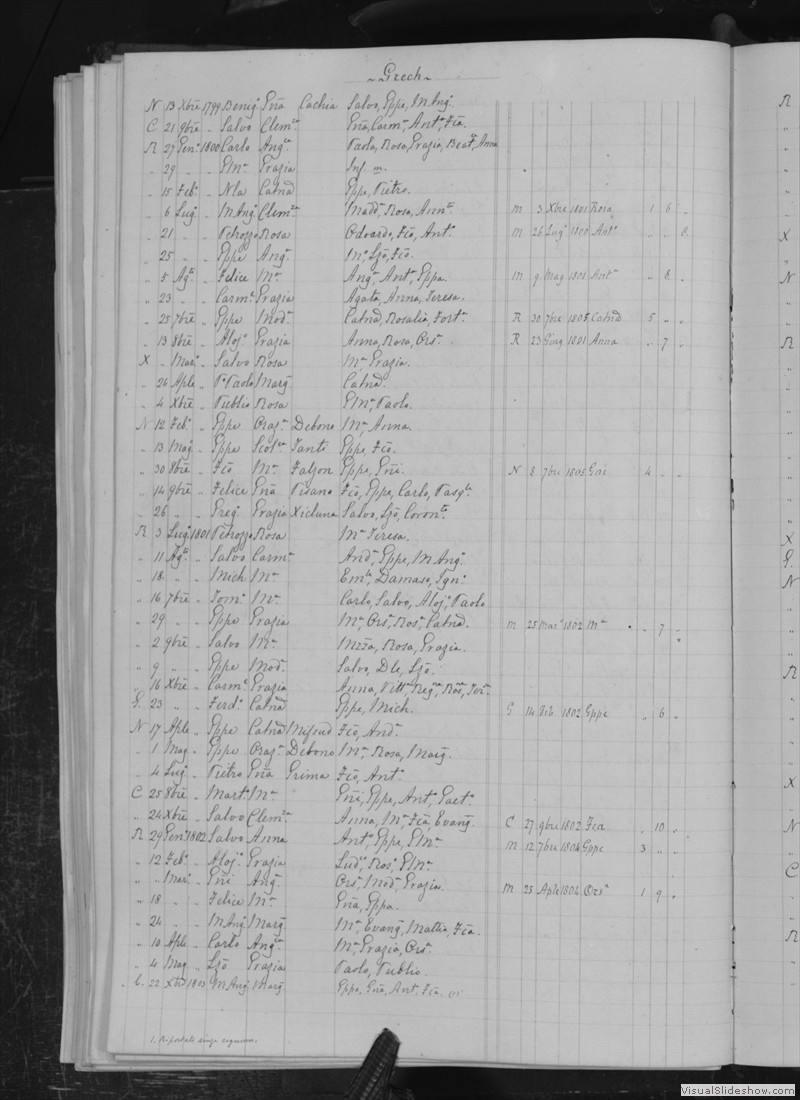 ~ Grech ~
N 13 Xbre 1799 Benig Gña Cachia Salvo, Gppe, M Ang.
C 21 9bre " Salvo Clem.za Gña, Carm.a, Ant.a, Fca.
R 27 Gen.o 1800 Carlo Ang.ca Paolo, Rosa, Grazia, Beat.a, Anna
" 29 " " Grazia Inf. m.
" 15 Feb.o " Nla Catnd Gppe, Pietro.
" 6 Lug. " M Ang. Clem.za Madd.a, Rosa, Ann.ta m 3 Xbre 1801 Rosa 1 6 "
" 21 " " Petrozzo Rosa Odoardo, Fco, Ant.o m 26 Lug. 1800 Ant.o
" 25 " " Gppe Ang.a M.a, Fco.
" 5 Ag.to " Felice M.a Ang.a, Ant.a, Gppa. m 9 Mag 1801 Ant.a " 8 "
" 23 " " Carm.o Grazia Agata, Anna, Teresa.
" 25 7bre " Gppe Mod.a Catnd, Rosalia, Fort.a R 30 7bre 1805 Catnd 5 " "
" 13 8bre " Aloj.o Grazia Anna, Rosa, Ors.a R 23 Giug 1801 Anna " 7 "
X " Mar.o " Salvo Rosa M.a Grazia.
" 24 Aple " P. Paolo Marg. Catnd.
" 4 Xbre " Publio Rosa Paolo.
N 12 Feb.o " Gppe Oraz.a Debono M.a Anna.
" 13 Mag. " Gppe Scol.ca Tanti Gppe, Fco.
" 30 8bre " Fco M.a Falzon Gppe, Gñi. N 8 7bre 1805 Gñi 4 " "
" 14 9bre " Felice Gña Pisano Fco, Gppe, Carlo, Pasq.le
" 26 " " Greg.o Grazia Xicluna Salvo, Coron.ta
R 3 Lug. 1801 Petrozzo Rosa M.a Teresa.
" 11 Ag.to " Salvo Carm.a And.a, Gppe, M Ang.
" 18 " " Mich M.a Em.le, Damaso, Ign.o
" 16 7bre " Tom.o M.a Carlo, Salvo, Aloj.o, Paolo
" 29 " " Gppe Grazia M.a, Ors.a, Ros.a, Catnd. m 25 Mar.o 1802 M.a " 7 "
" 2 9bre " Salvo M.a Rosa, Grazia.
" 9 " " Gppe Mod.a Salvo,
" 16 Xbre " Carm.o Grazia Anna, Vitt.a, Reg.na,
G. 23 " " Ferd.o Catnd Gppe, Mich. G 14 Feb. 1802 Gppe " 6 "
N 17 Aple " Gppe Catnd Mifsud Fco, And.a
" 1 Mag. " Gppe Oraz.a Debono M.a, Rosa, Marg.
" 4 Lug. " Pietro Gña Grima Fco, Ant.o
C 25 8bre " Mart.o M.a Gñi, Gppe, Ant.o, Gaet.o
" 24 Xbre " Salvo Clem.za Anna, M.a, Fca, Evang. C 27 9bre 1802 Fca " 10 "
R 29 Gen.o 1802 Salvo Anna Ant.o, Gppe, m 12 7bre 1804 Gppe 3 " "
" 12 Feb.o " Aloj.o Grazia Lud.o, Ros.a,
" " Mar.o " Gñi Ang.a Ors.a, Mod.a, Grazia. m 25 Aple 1804 Ors.a 1 9 "
" 18 " " Felice M.a Gña, Gppa.
" 24 " " M Ang. Marg. M.a, Evang., Mattia, Fca.
" 10 Aple " Carlo Ang.ca M.a, Grazia, Ors.a
" 4 Mag. " Grazia Paolo, Publio.
C. 22 Xbre 1803 M Ang. Marg. Gppe, Gña, Ant.o, Fca.
VisualSlideshow.com